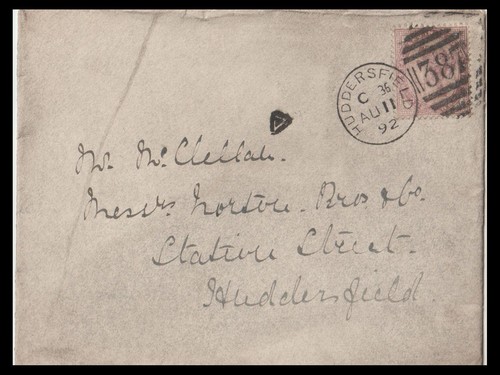 HUDDERSFIELD
C 36
AU 11
92
387
Mr. McClellan.
Messrs Norton. Bros & Co.
Station Street.
Huddersfield.